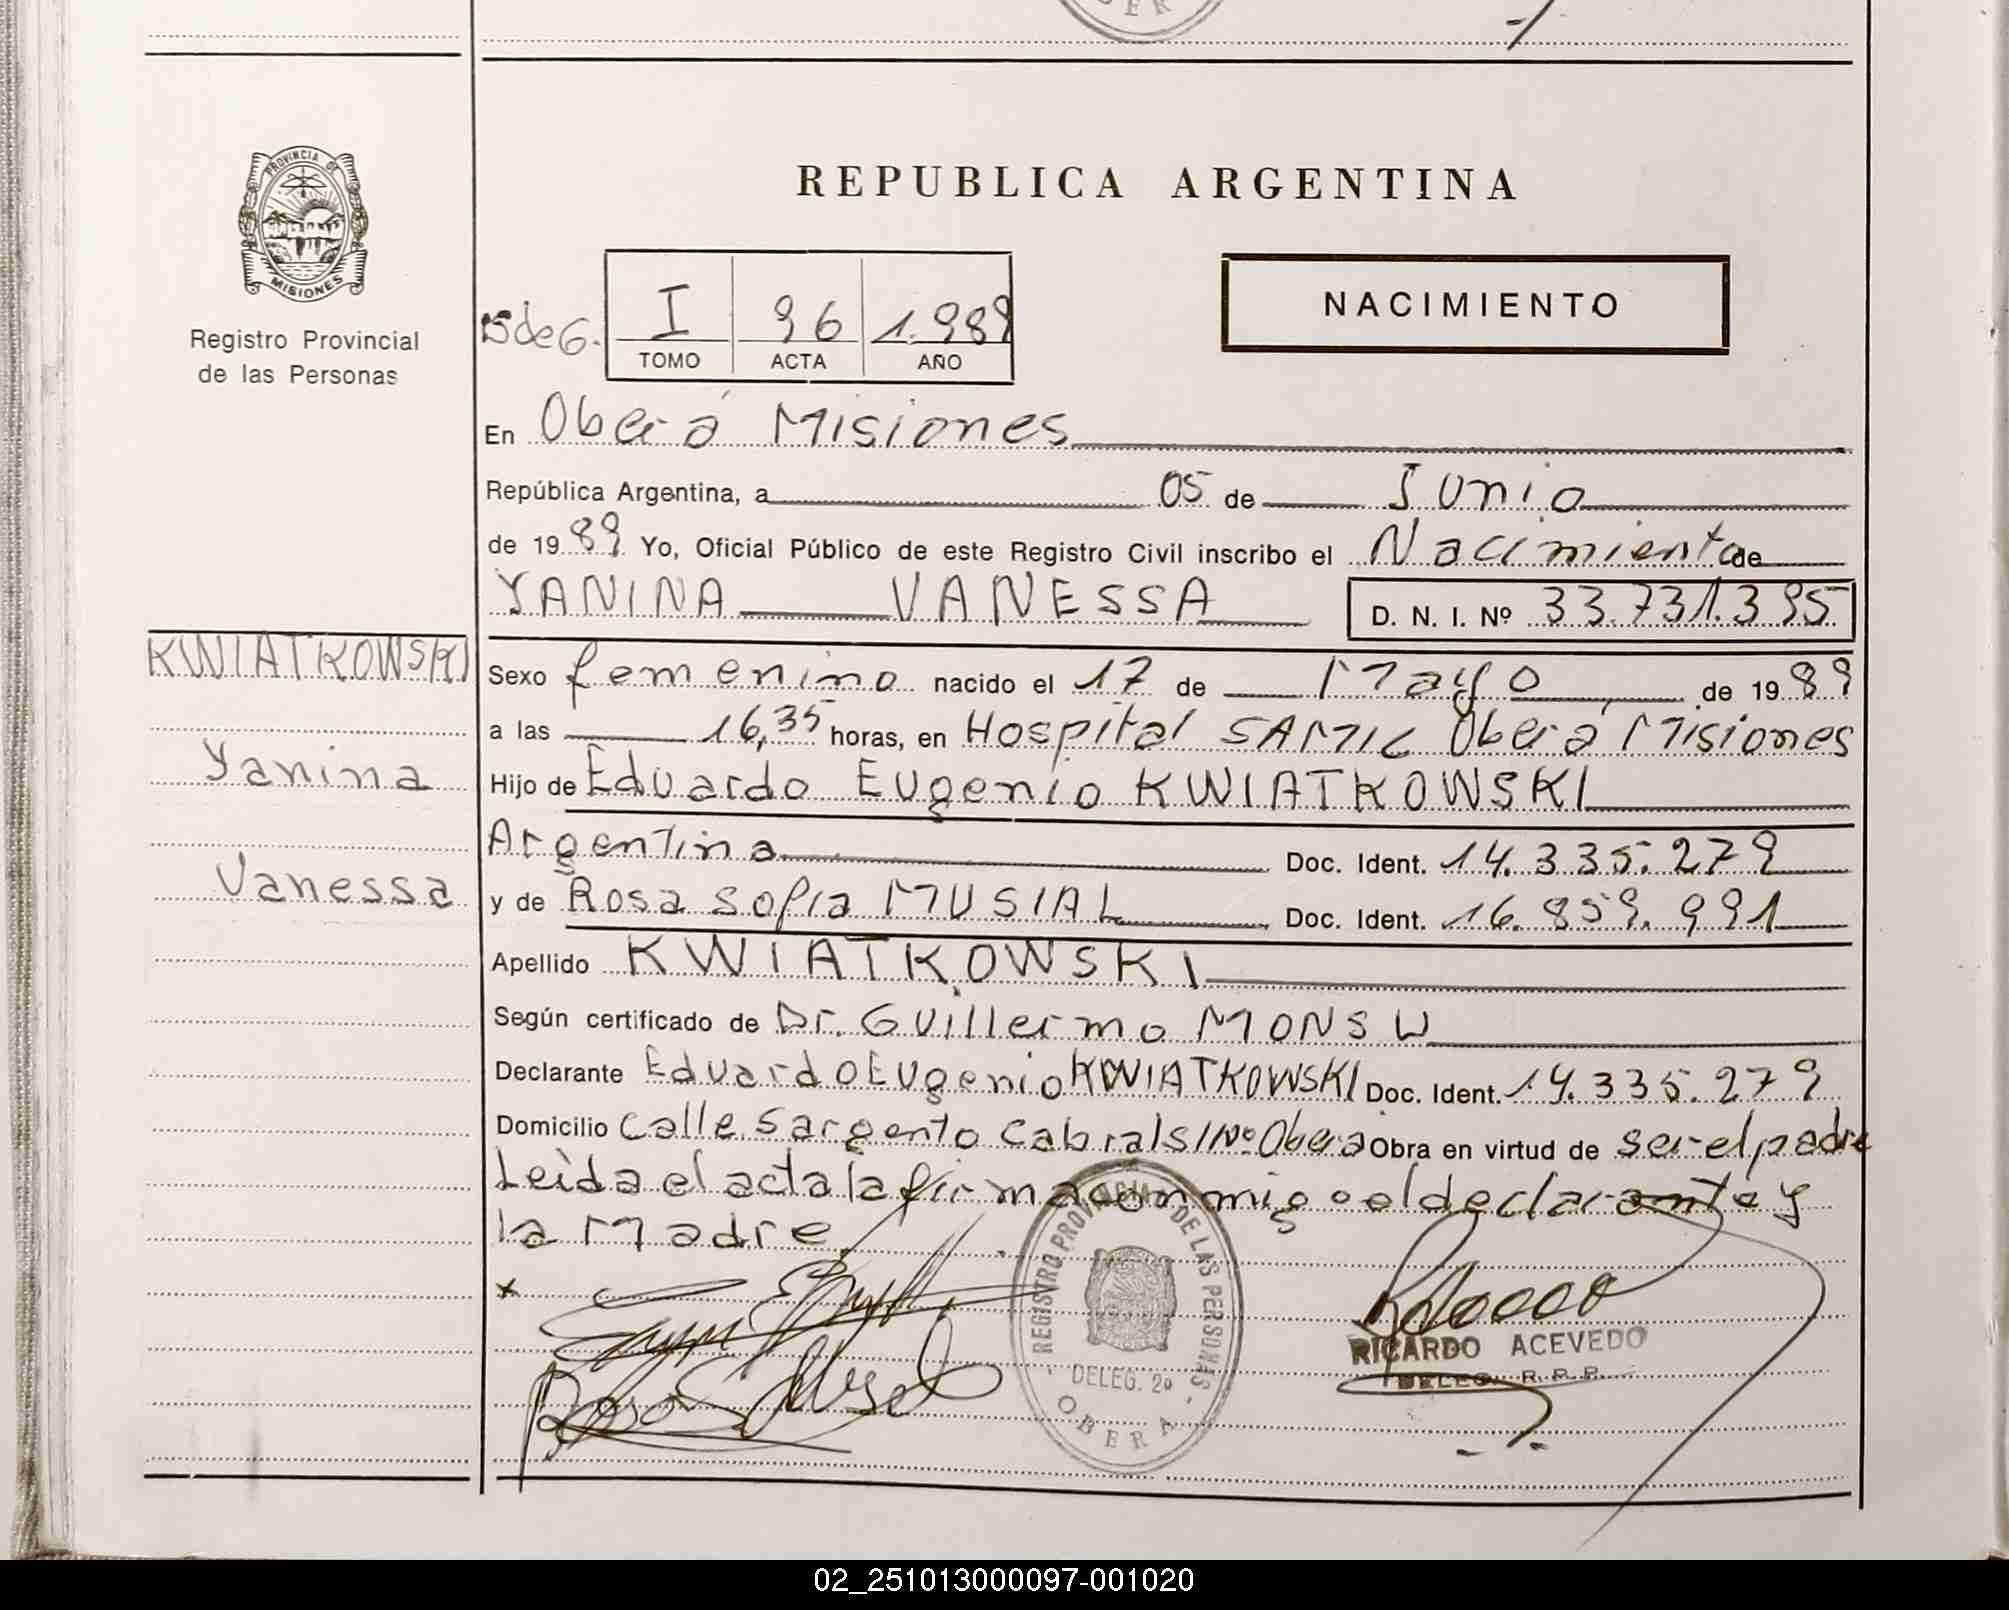 PROVINCIA DE
MISIONES
Registro Provincial
de las Personas
REPUBLICA ARGENTINA
NACIMIENTO
5 de G. I 96 1.989
TOMO ACTA AÑO
En Oberá Misiones
República Argentina, a 05 de Junio
de 1989 Yo, Oficial Público de este Registro Civil inscribo el Nacimiento de
YANINA VANESSA D. N. I. Nº 33.731.395
KWIATKOWSKI
Yanina
Vanessa
Sexo femenino nacido el 17 de Mayo de 1989
a las 16,35 horas, en Hospital SAMIC Oberá Misiones
Hijo de Eduardo Eugenio KWIATKOWSKI
Argentina Doc. Ident. 14.335.279
y de Rosa Sofia MUSIAL Doc. Ident. 16.859.991
Apellido KWIATKOWSKI
Según certificado de Dr. Guillermo MONSW
Declarante Eduardo Eugenio KWIATKOWSKI Doc. Ident. 14.335.279
Domicilio Calle Sargento Cabral S/Nº Oberá Obra en virtud de ser el padre
Leida el acta la firma conmigo el declarante y
la Madre
REGISTRO PROVINCIAL DE LAS PERSONAS
DELEG. 2º
OBERA
RICARDO ACEVEDO
DELEG. R.P.P.
02_251013000097-001020